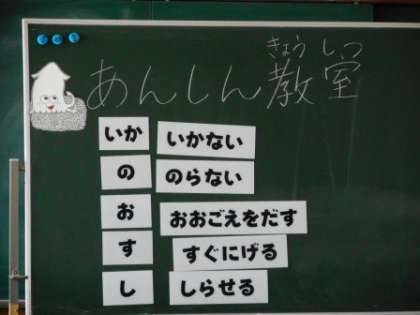 きょうしつ
あんしん教室
いか いかない
の のらない
お おおごえをだす
す すぐにげる
し しらせる